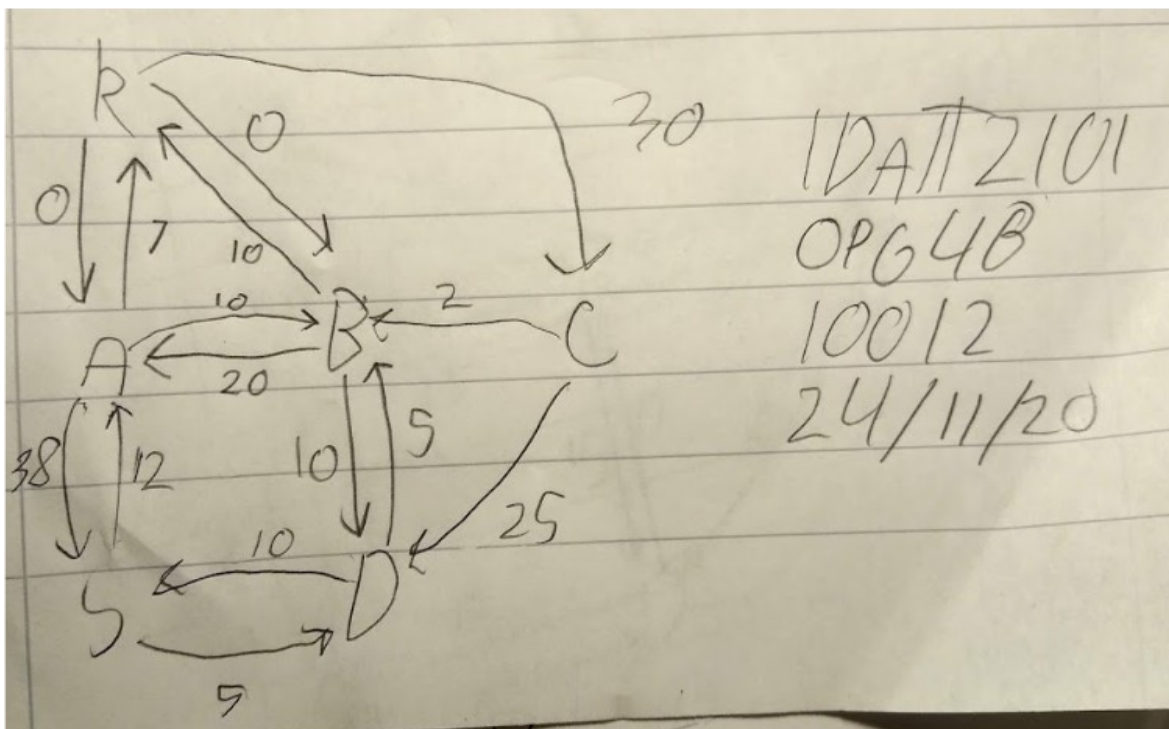 R
0
30
0
7
10
10
2
A
B
C
20
38
12
10
5
10
25
S
D
5
IDATT2101
OPG4B
10012
24/11/20